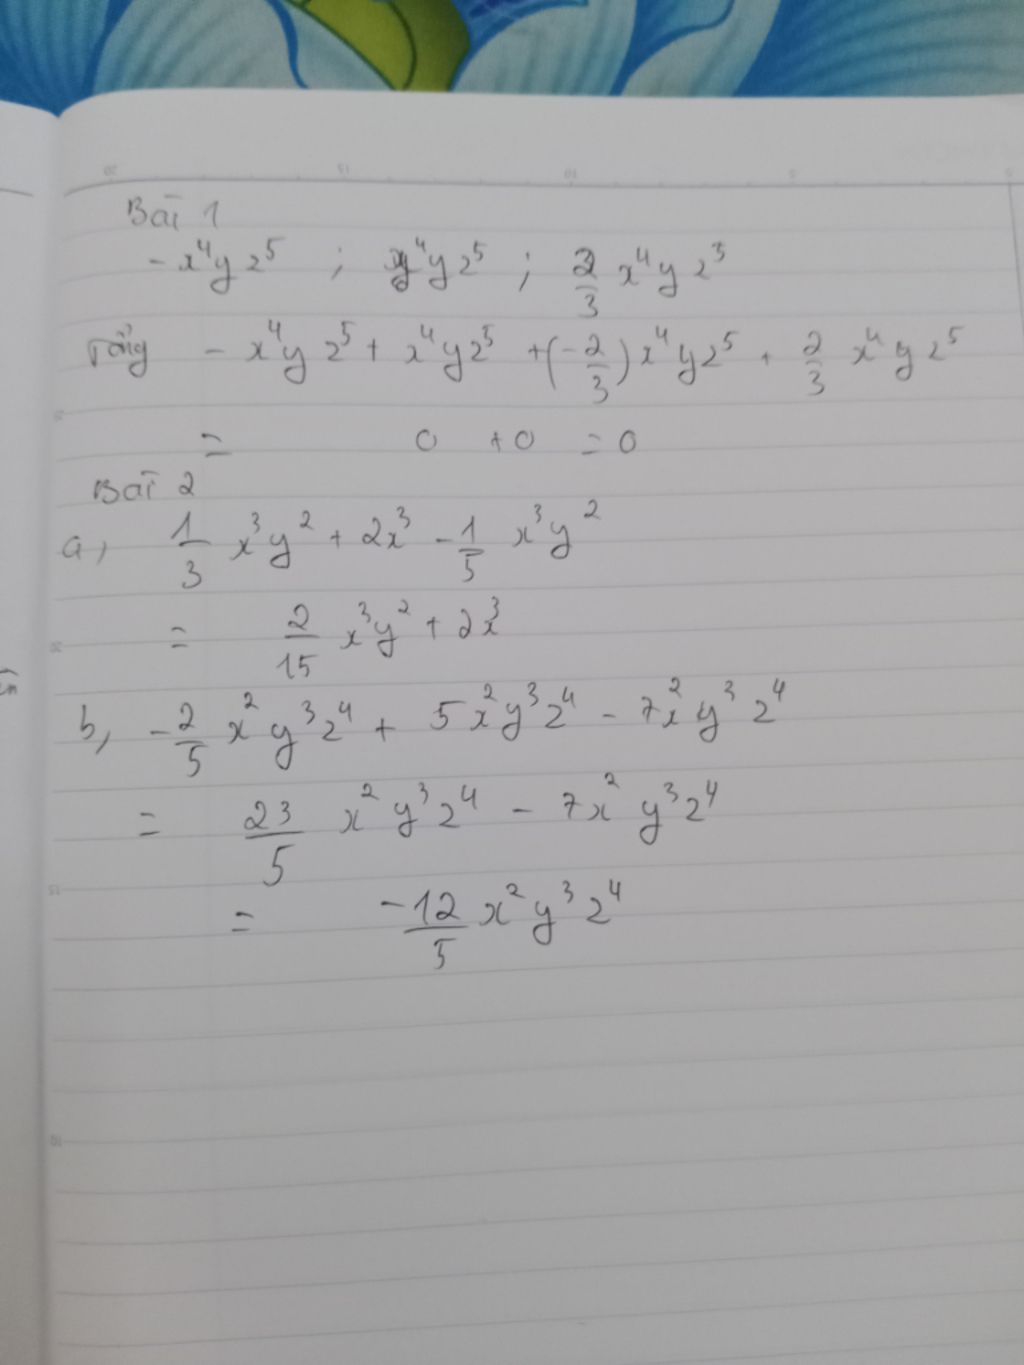 Bài 1
-x⁴yz⁵ ; x⁴yz⁵ ; 2/3 x⁴yz⁵
Tổng -x⁴yz⁵ + x⁴yz⁵ + (-2/3)x⁴yz⁵ + 2/3 x⁴yz⁵
= 0 + 0 = 0
Bài 2
a, 1/3 x³y² + 2x³ - 1/5 x³y²
= 2/15 x³y² + 2x³
b, -2/5 x²y³z⁴ + 5x²y³z⁴ - 7x²y³z⁴
= 23/5 x²y³z⁴ - 7x²y³z⁴
= -12/5 x²y³z⁴